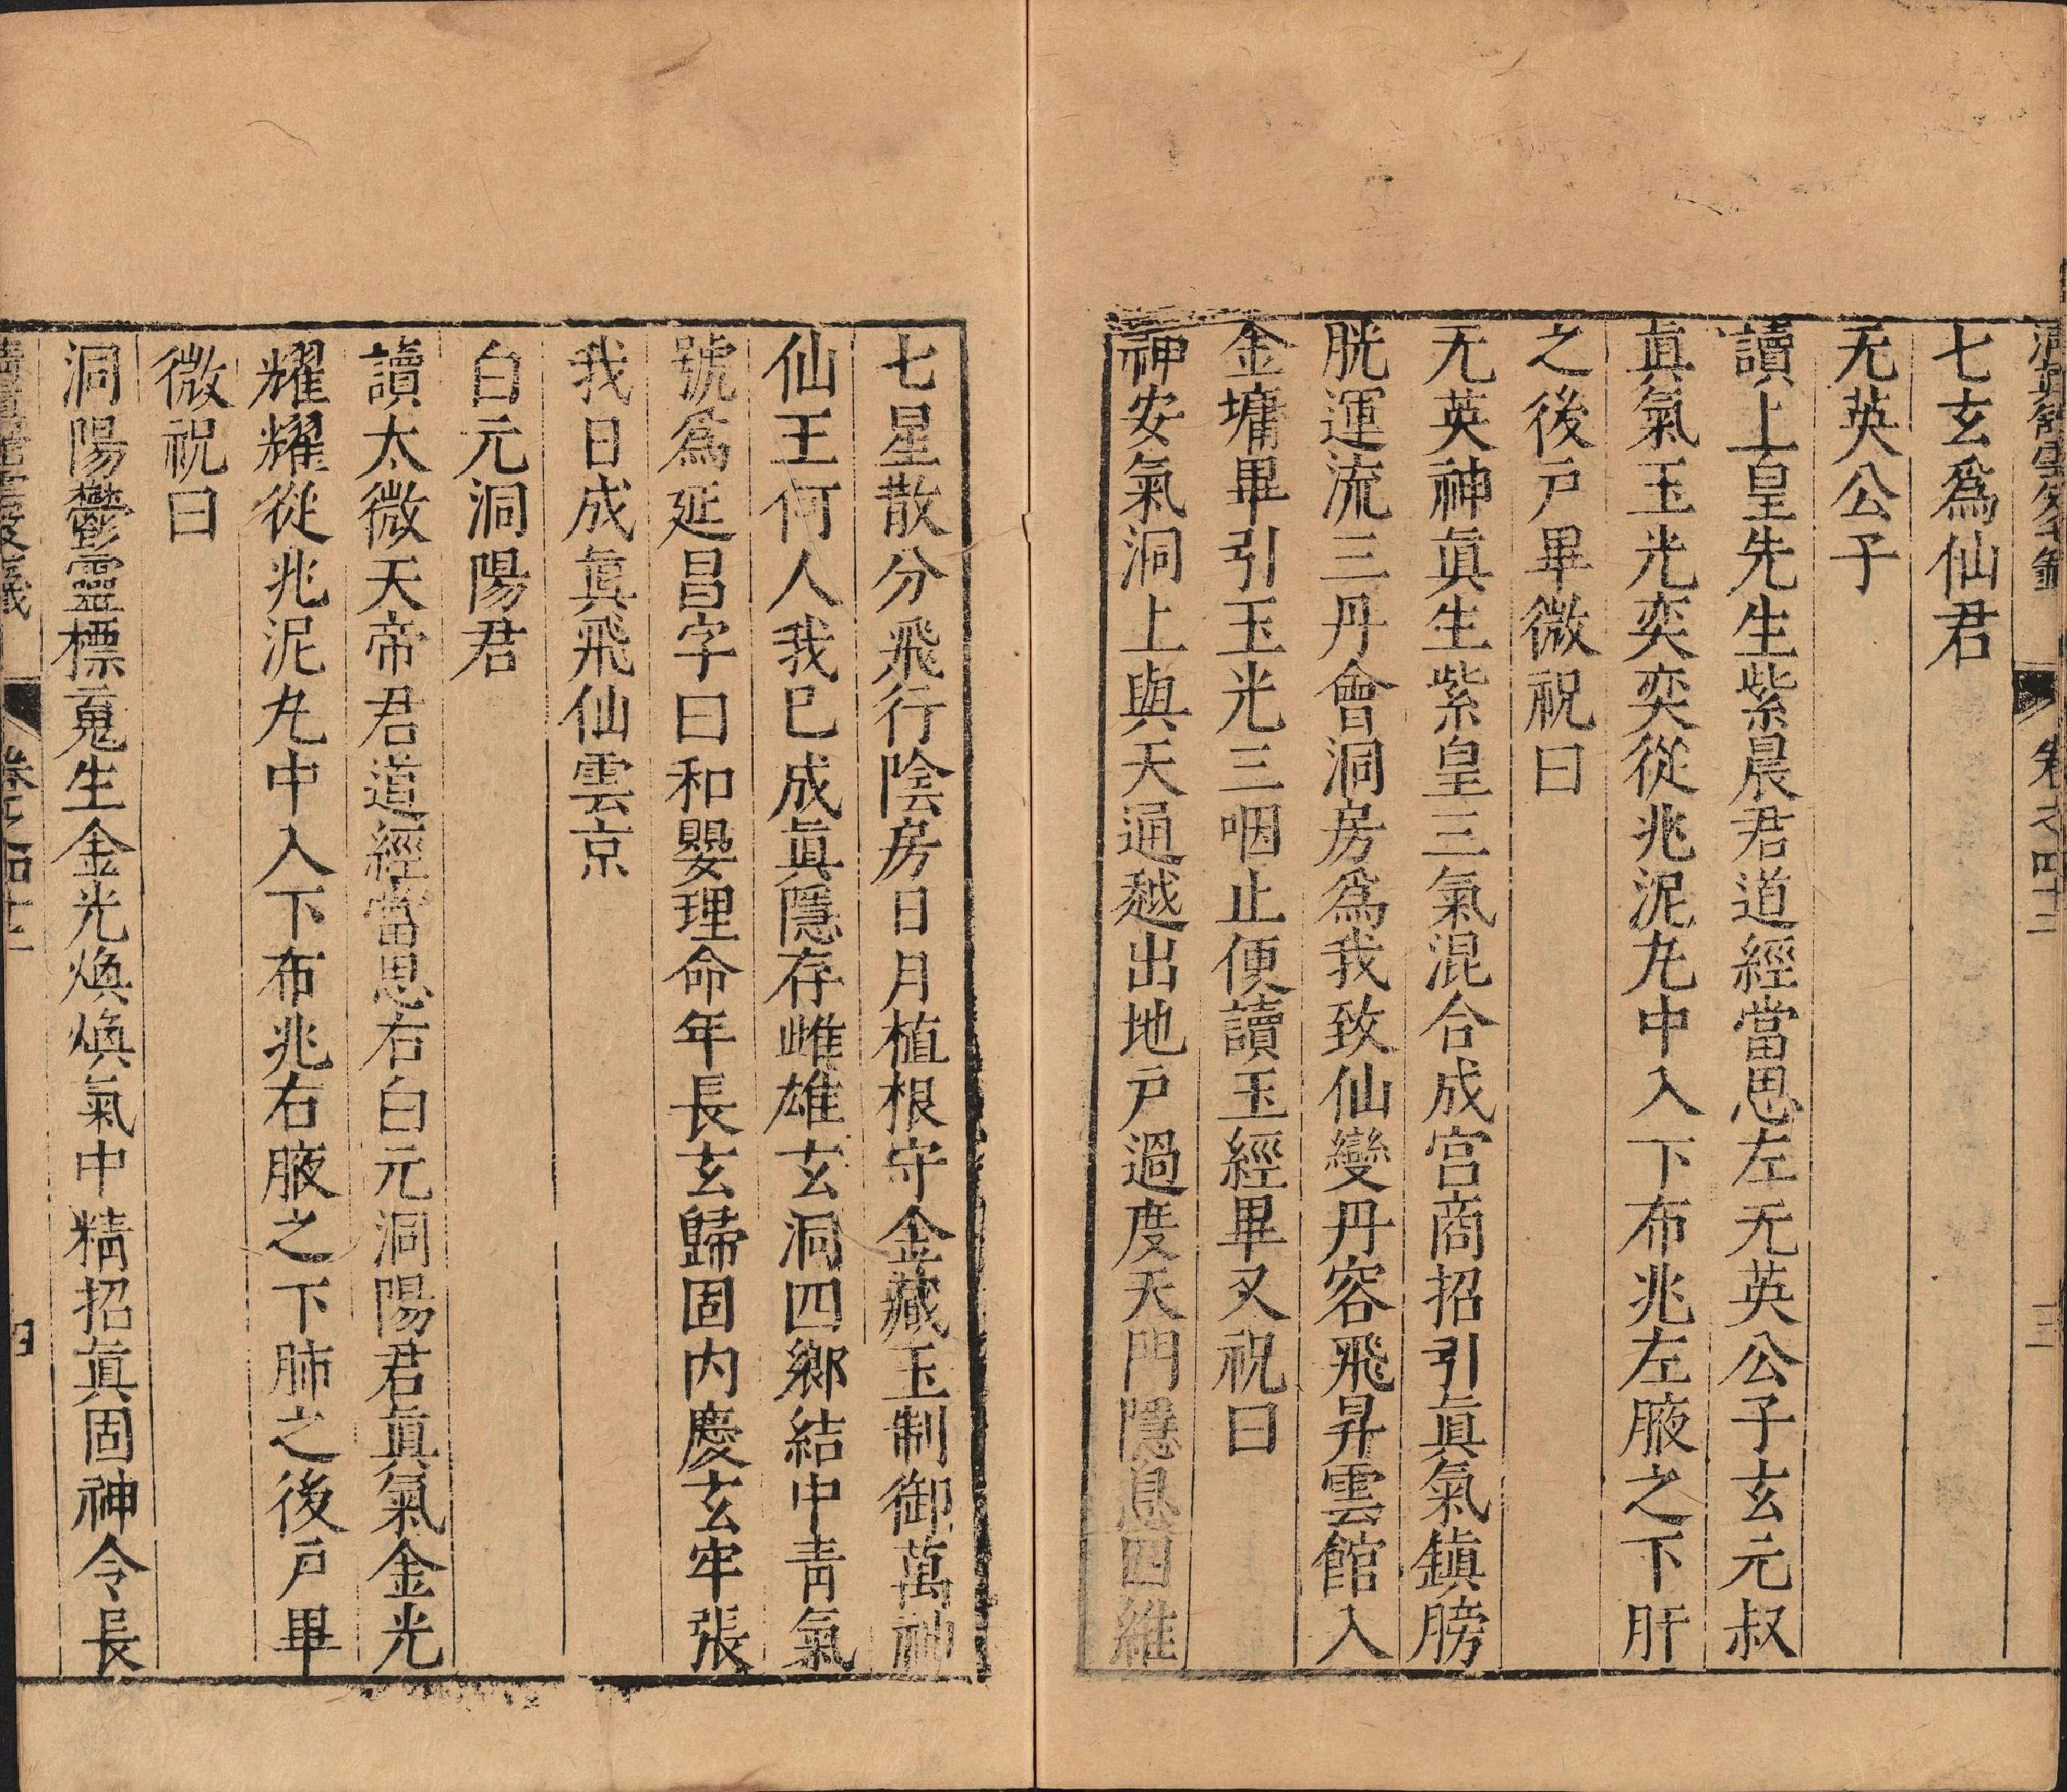 卷之四十二
三
七玄爲仙君
无英公子
讀上皇先生紫晨君道經當思左无英公子玄元叔
眞氣玉光奕奕從兆泥丸中入下布兆左腋之下肝
之後戸畢微祝曰
无英神眞生紫皇三氣混合成宫商招引眞氣鎭膀
胱運流三丹會洞房爲我致仙變丹容飛昇雲館入
金墉畢引玉光三咽止便讀玉經畢又祝曰
神安氣洞上與天通越出地戸過度天門隱息四維
七星散分飛行陰房日月植根守金藏玉制御萬神
仙王何人我已成眞隱存雌雄玄洞四鄉結中靑氣
號爲延昌字曰和嬰理命年長玄歸固内慶玄牢張
我日成眞飛仙雲京
白元洞陽君
讀太微天帝君道經當思右白元洞陽君眞氣金光
耀耀從兆泥丸中入下布兆右腋之下肺之後戸畢
微祝曰
洞陽鬱靈標蒐生金光煥煥氣中精招眞固神令長
四